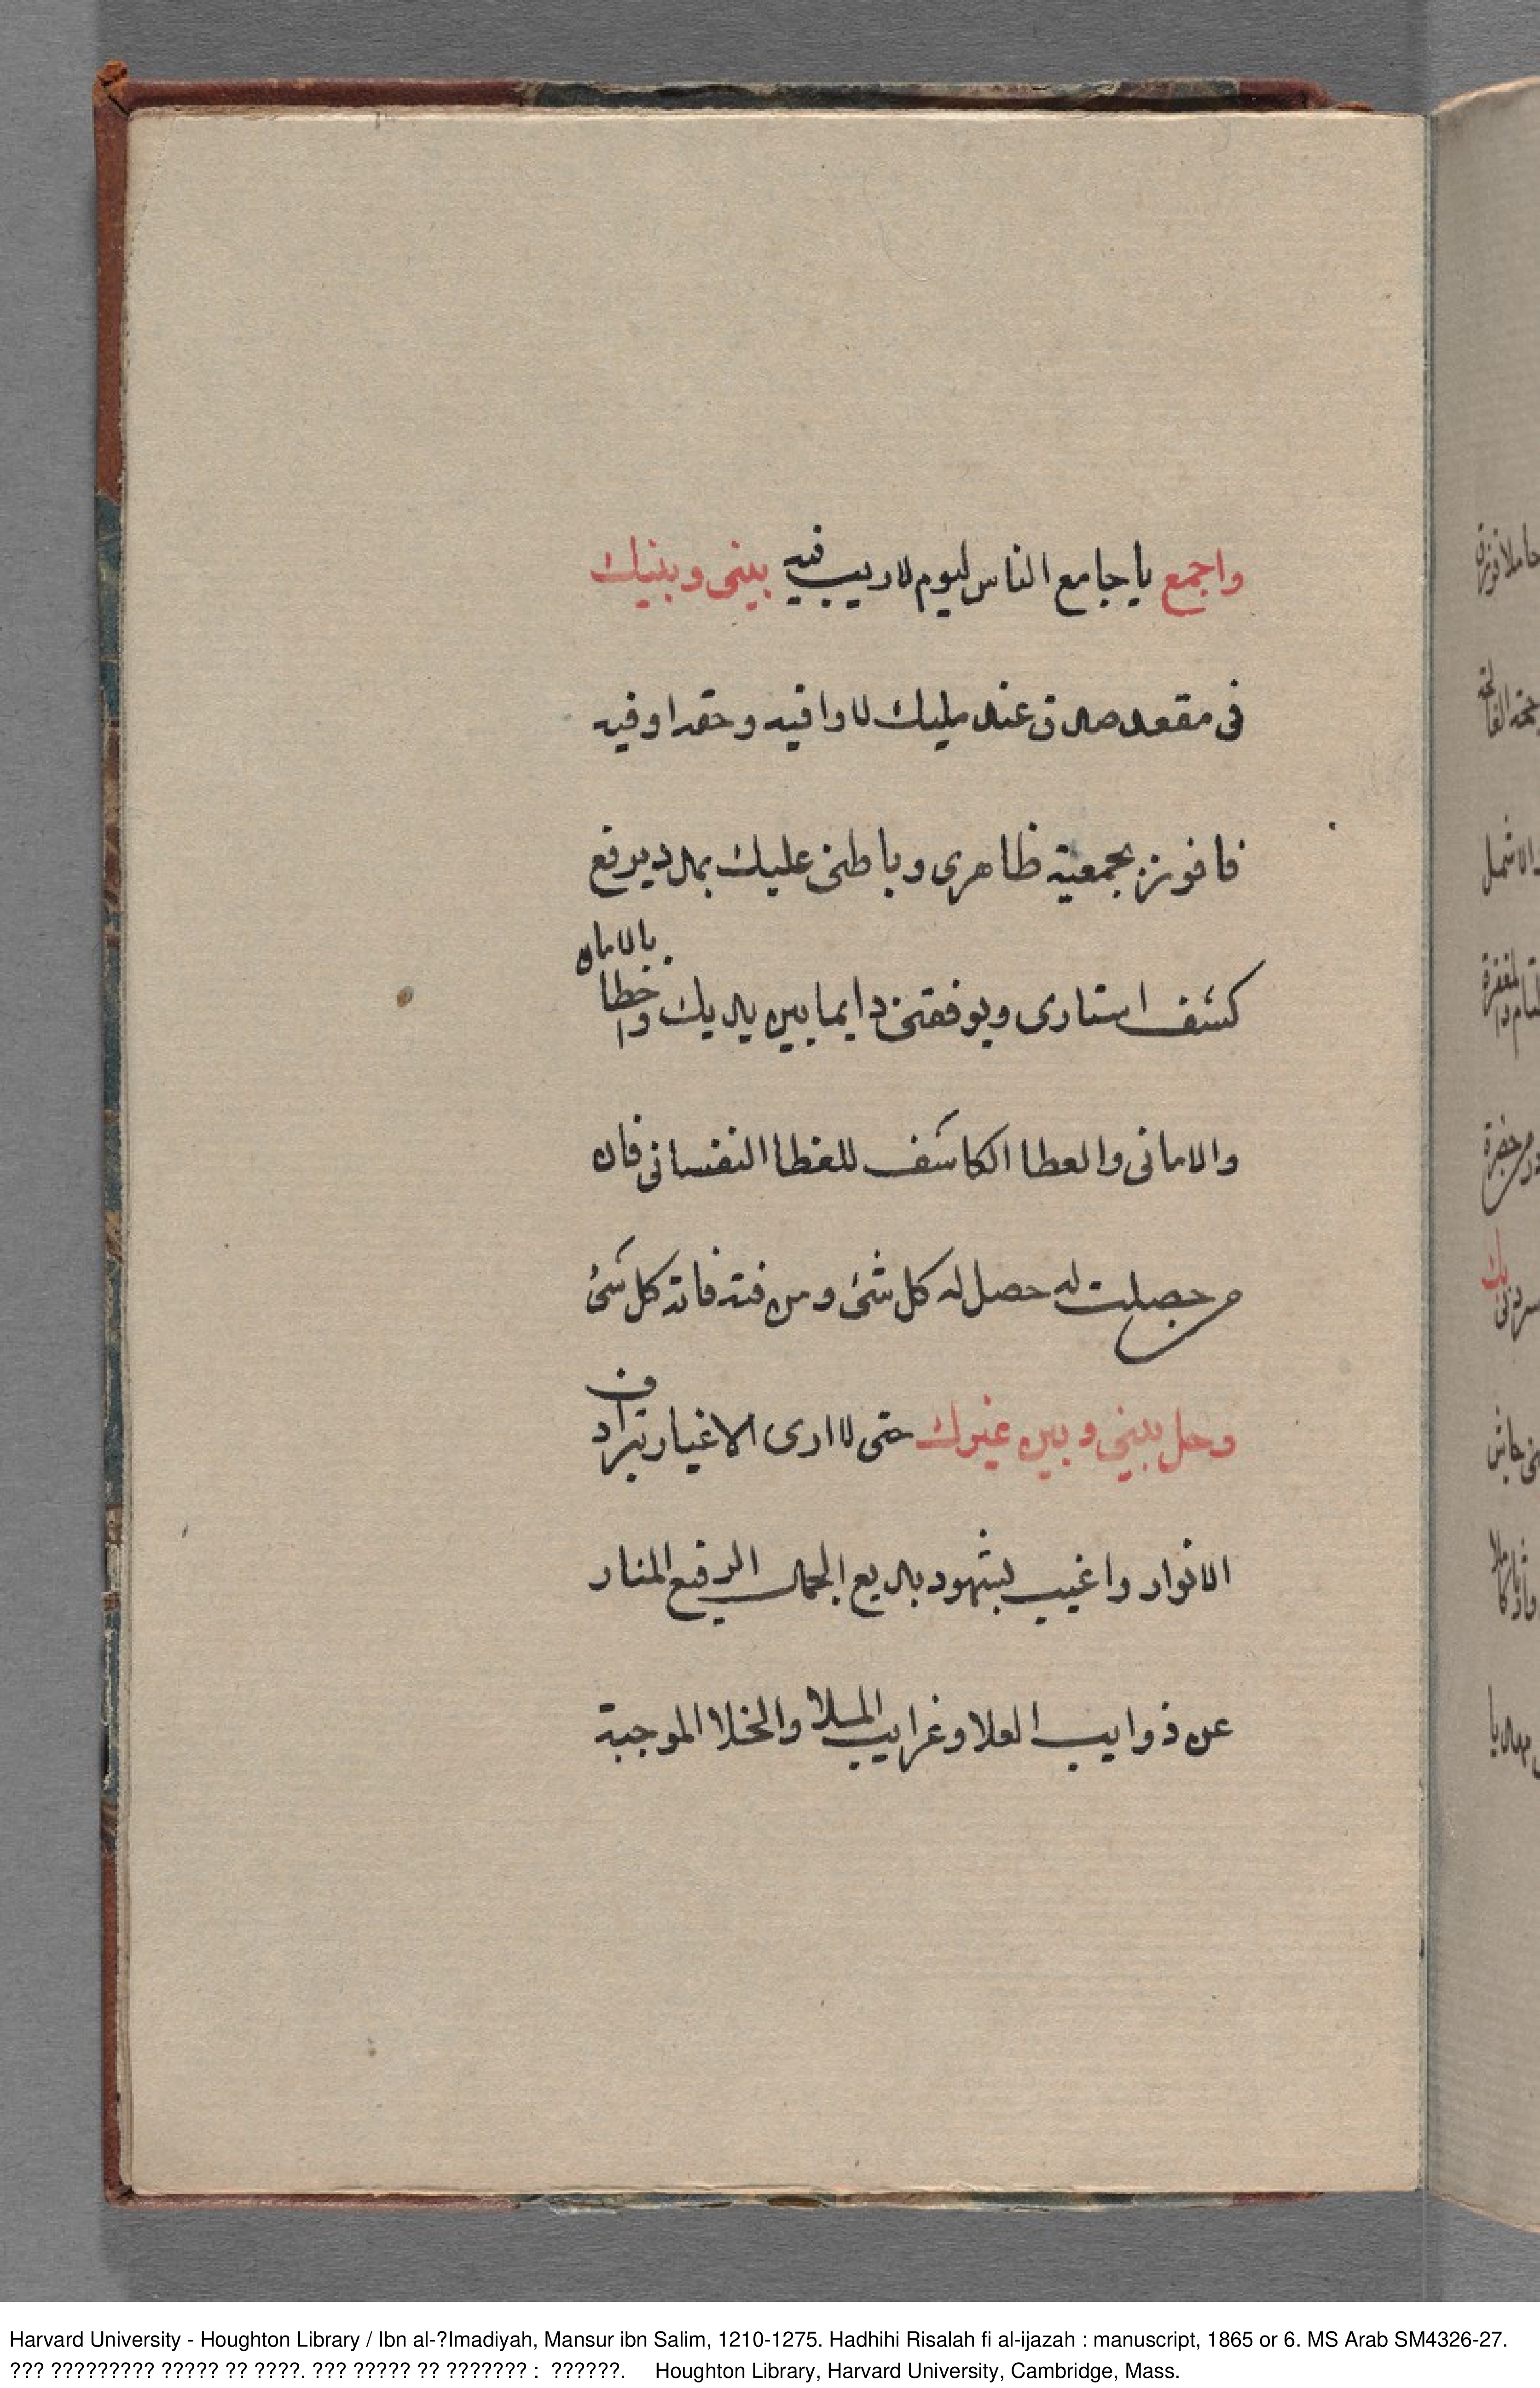 واجمع يا جامع الناس ليوم لا ريب فيه بينى وبينك
فى مقعد صدق عند مليك لاوافيه وحقه اوفيه
فافوز بجمعية ظاهرى وباطنى عليك بمدد يرفع
كشف استارى ويوفقنى دايما بين يديك واخطا بالامان
والامانى والعطا الكاشف للغطا النفسانى فان
من حصلت له حصل له كل شئ ومن فته فاته كل شئ
وحل بينى وبين غيرك حتى لا ارى الاغيار ترادف
الانوار واغيب بشهود بديع الجمال الرفيع المنار
عن ذوايب العلا وغرايب الملا والخلا الموجبة
Harvard University - Houghton Library / Ibn al-?Imadiyah, Mansur ibn Salim, 1210-1275. Hadhihi Risalah fi al-ijazah : manuscript, 1865 or 6. MS Arab SM4326-27.
??? ????????? ????? ?? ????. ??? ????? ?? ??????? : ??????. Houghton Library, Harvard University, Cambridge, Mass.